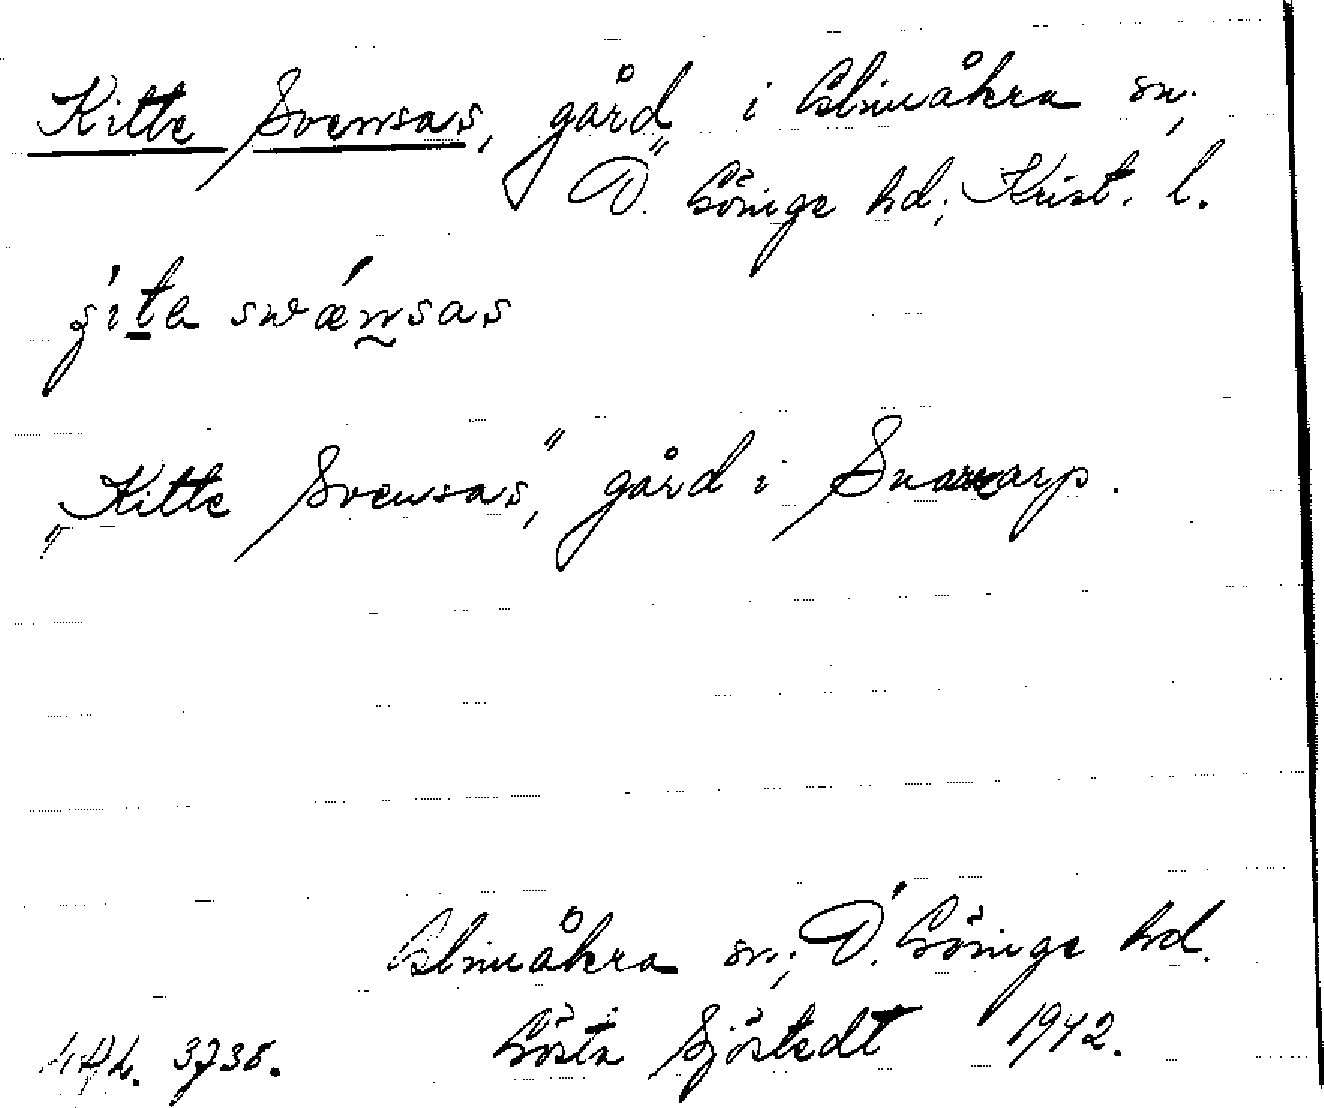 Kitte Svensas, gård i Glimåkra sn,
Ö. Göinge hd, Krist. l.
gite swænsas
"Kitte Svensas," gård i Snararp.
Glimåkra sn, Ö. Göinge hd.
3738. Gösta Sjöstedt 1942.